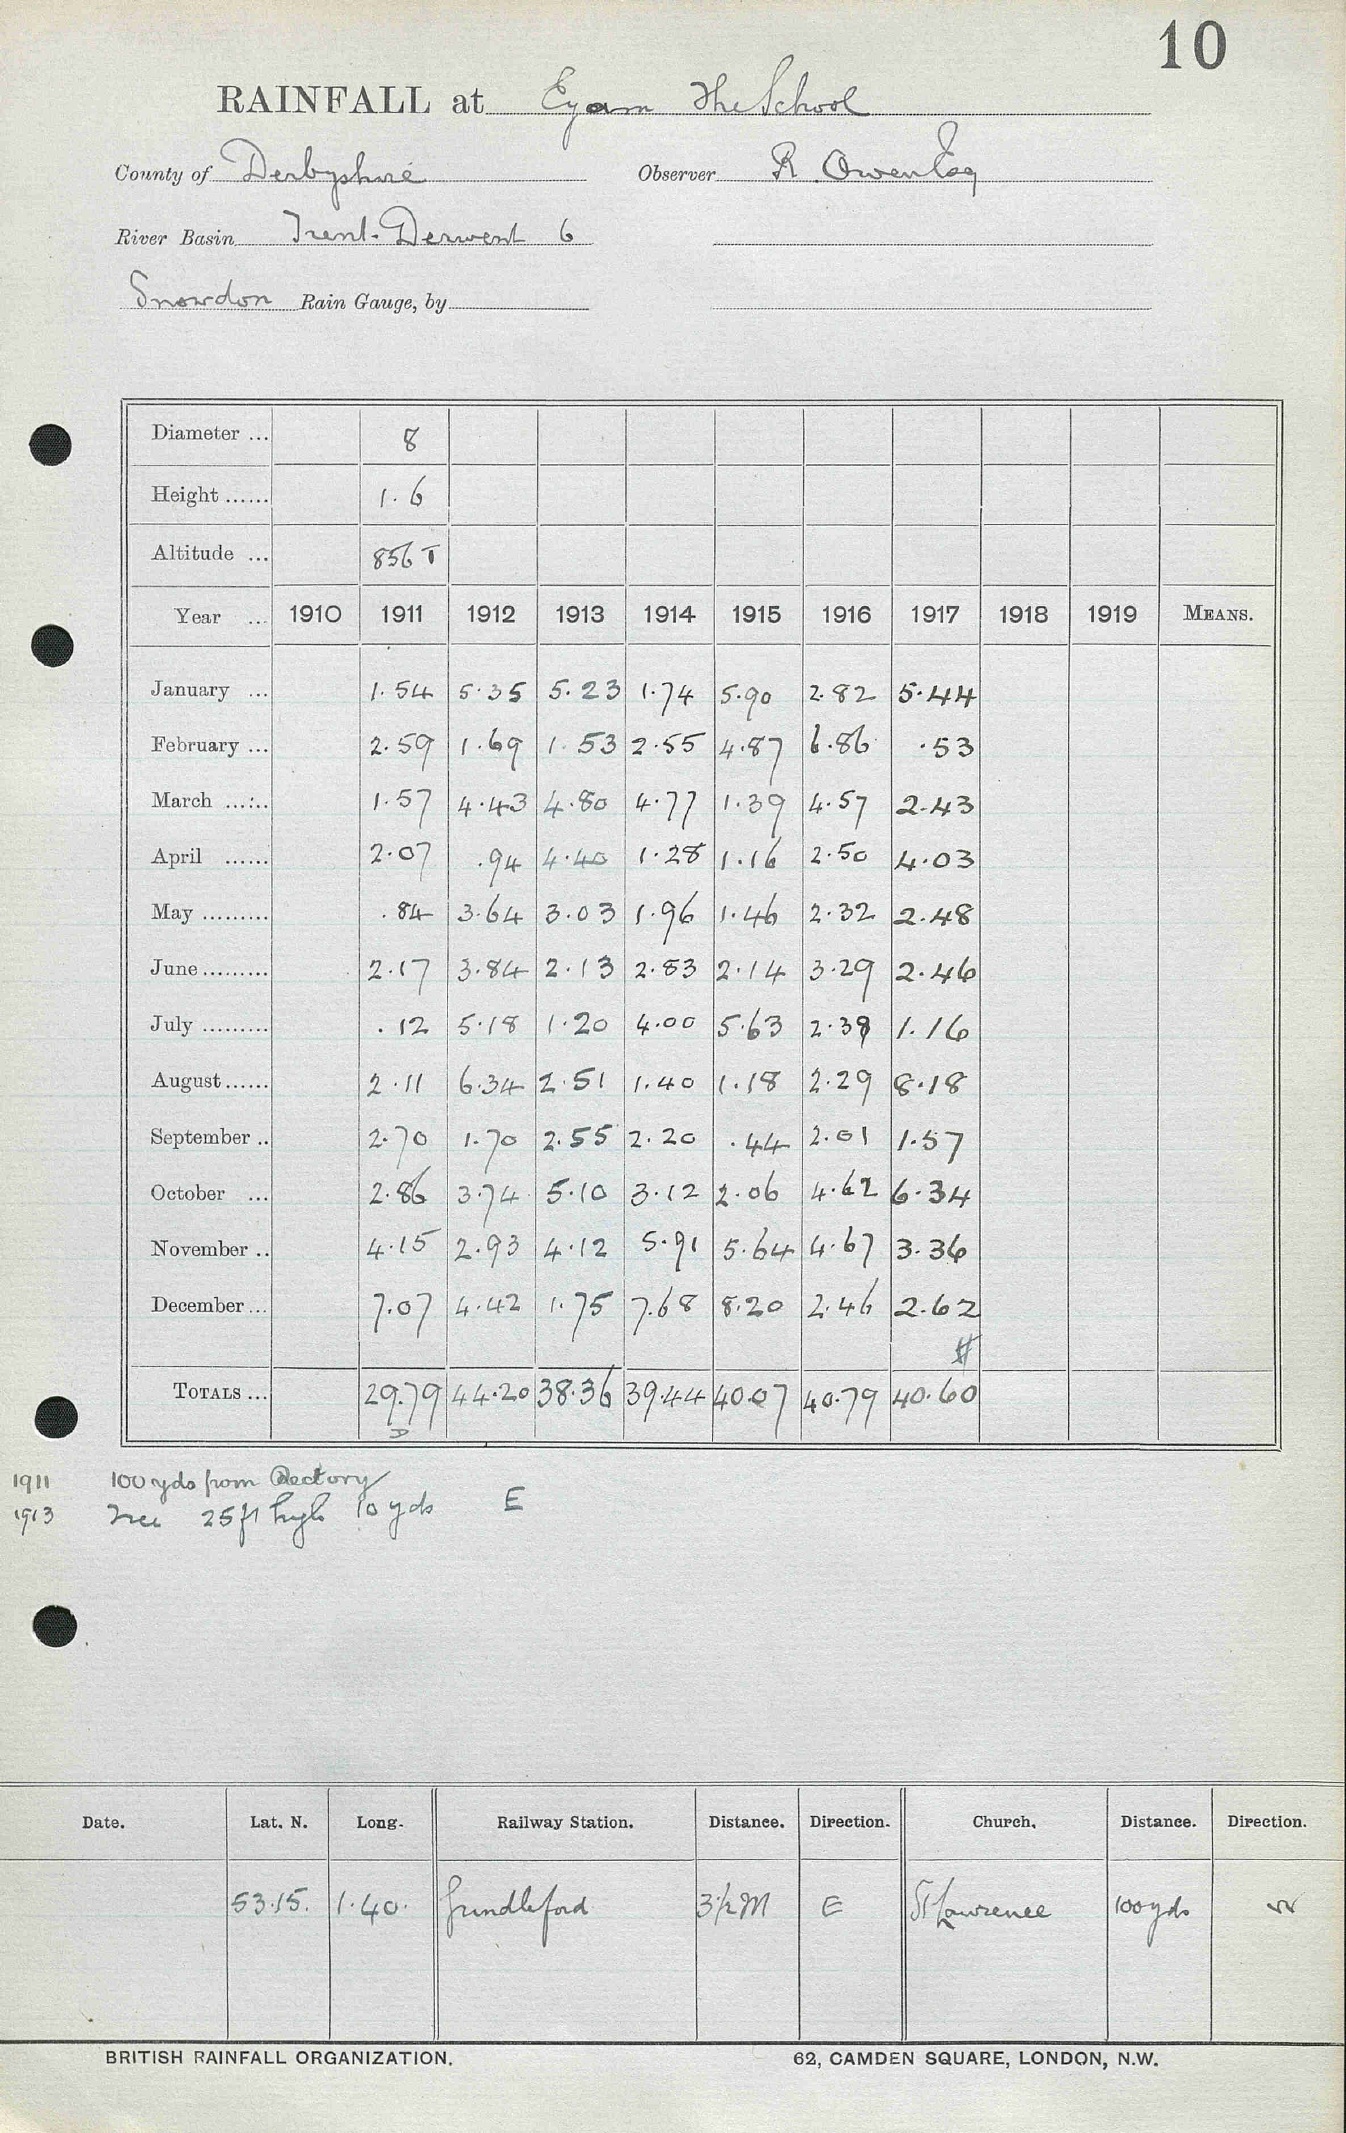 10
RAINFALL at Eyam The School
County of Derbyshire Observer R. Owen Esq
River Basin Trent-Derwent 6
Snowdon Rain Gauge, by
Diameter ... 8
Height ...... 1.6
Altitude ... 856 T
Year ... 1910 1911 1912 1913 1914 1915 1916 1917 1918 1919 MEANS.
January ... 1.54 5.35 5.23 1.74 5.90 2.82 5.44
February ... 2.59 1.69 1.53 2.55 4.87 6.86 .53
March ...... 1.57 4.43 4.80 4.77 1.39 4.57 2.43
April ...... 2.07 .94 4.40 1.28 1.16 2.50 4.03
May ......... .84 3.64 3.03 1.96 1.46 2.32 2.48
June ......... 2.17 3.84 2.13 2.83 2.14 3.29 2.46
July ......... .12 5.18 1.20 4.00 5.63 2.38 1.16
August ...... 2.11 6.34 2.51 1.40 1.18 2.29 8.18
September .. 2.70 1.70 2.55 2.20 .44 2.01 1.57
October ... 2.86 3.74 5.10 3.12 2.06 4.62 6.34
November .. 4.15 2.93 4.12 5.91 5.64 4.67 3.36
December ... 7.07 4.42 1.75 7.68 8.20 2.46 2.62
TOTALS ... 29.79 44.20 38.36 39.44 40.07 40.79 40.60
1911 100 yds from Rectory
1913 Tree 25 ft high 10 yds E
Date. Lat. N. Long. Railway Station. Distance. Direction. Church. Distance. Direction.
53.15. 1.40. Grindleford 3½ M E St Lawrence 100 yds W
BRITISH RAINFALL ORGANIZATION. 62, CAMDEN SQUARE, LONDON, N.W.